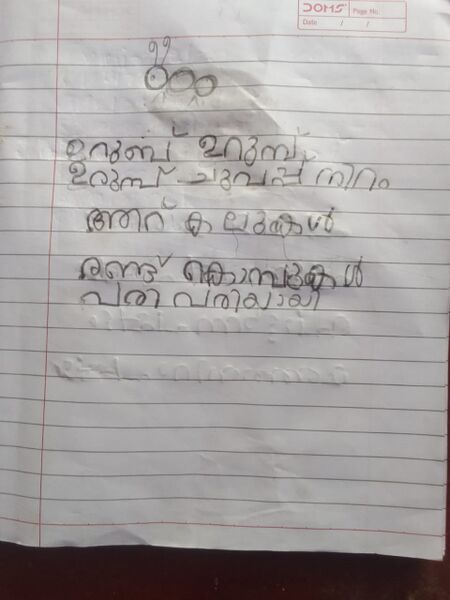 DOMS Page No.
Date / /
ഉറുബ് ഉറുമ്പ്
ഉരുമ്പ് ചുവപ്പ് നിറം
ആറ് കലുകൾ
രണ്ട് കൊമ്പുകൾ
പരി പരിയായി